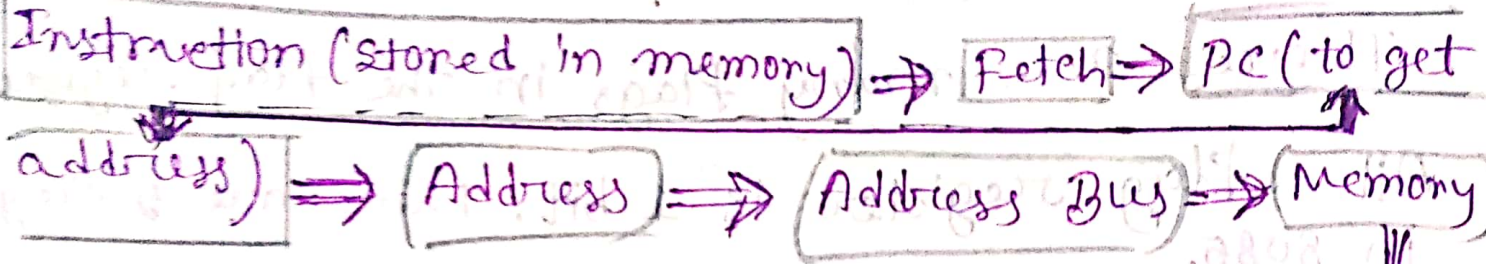 Instruction (stored in memory) ⇒ Fetch ⇒ PC (to get
address) ⇒ Address ⇒ Address Bus ⇒ Memory